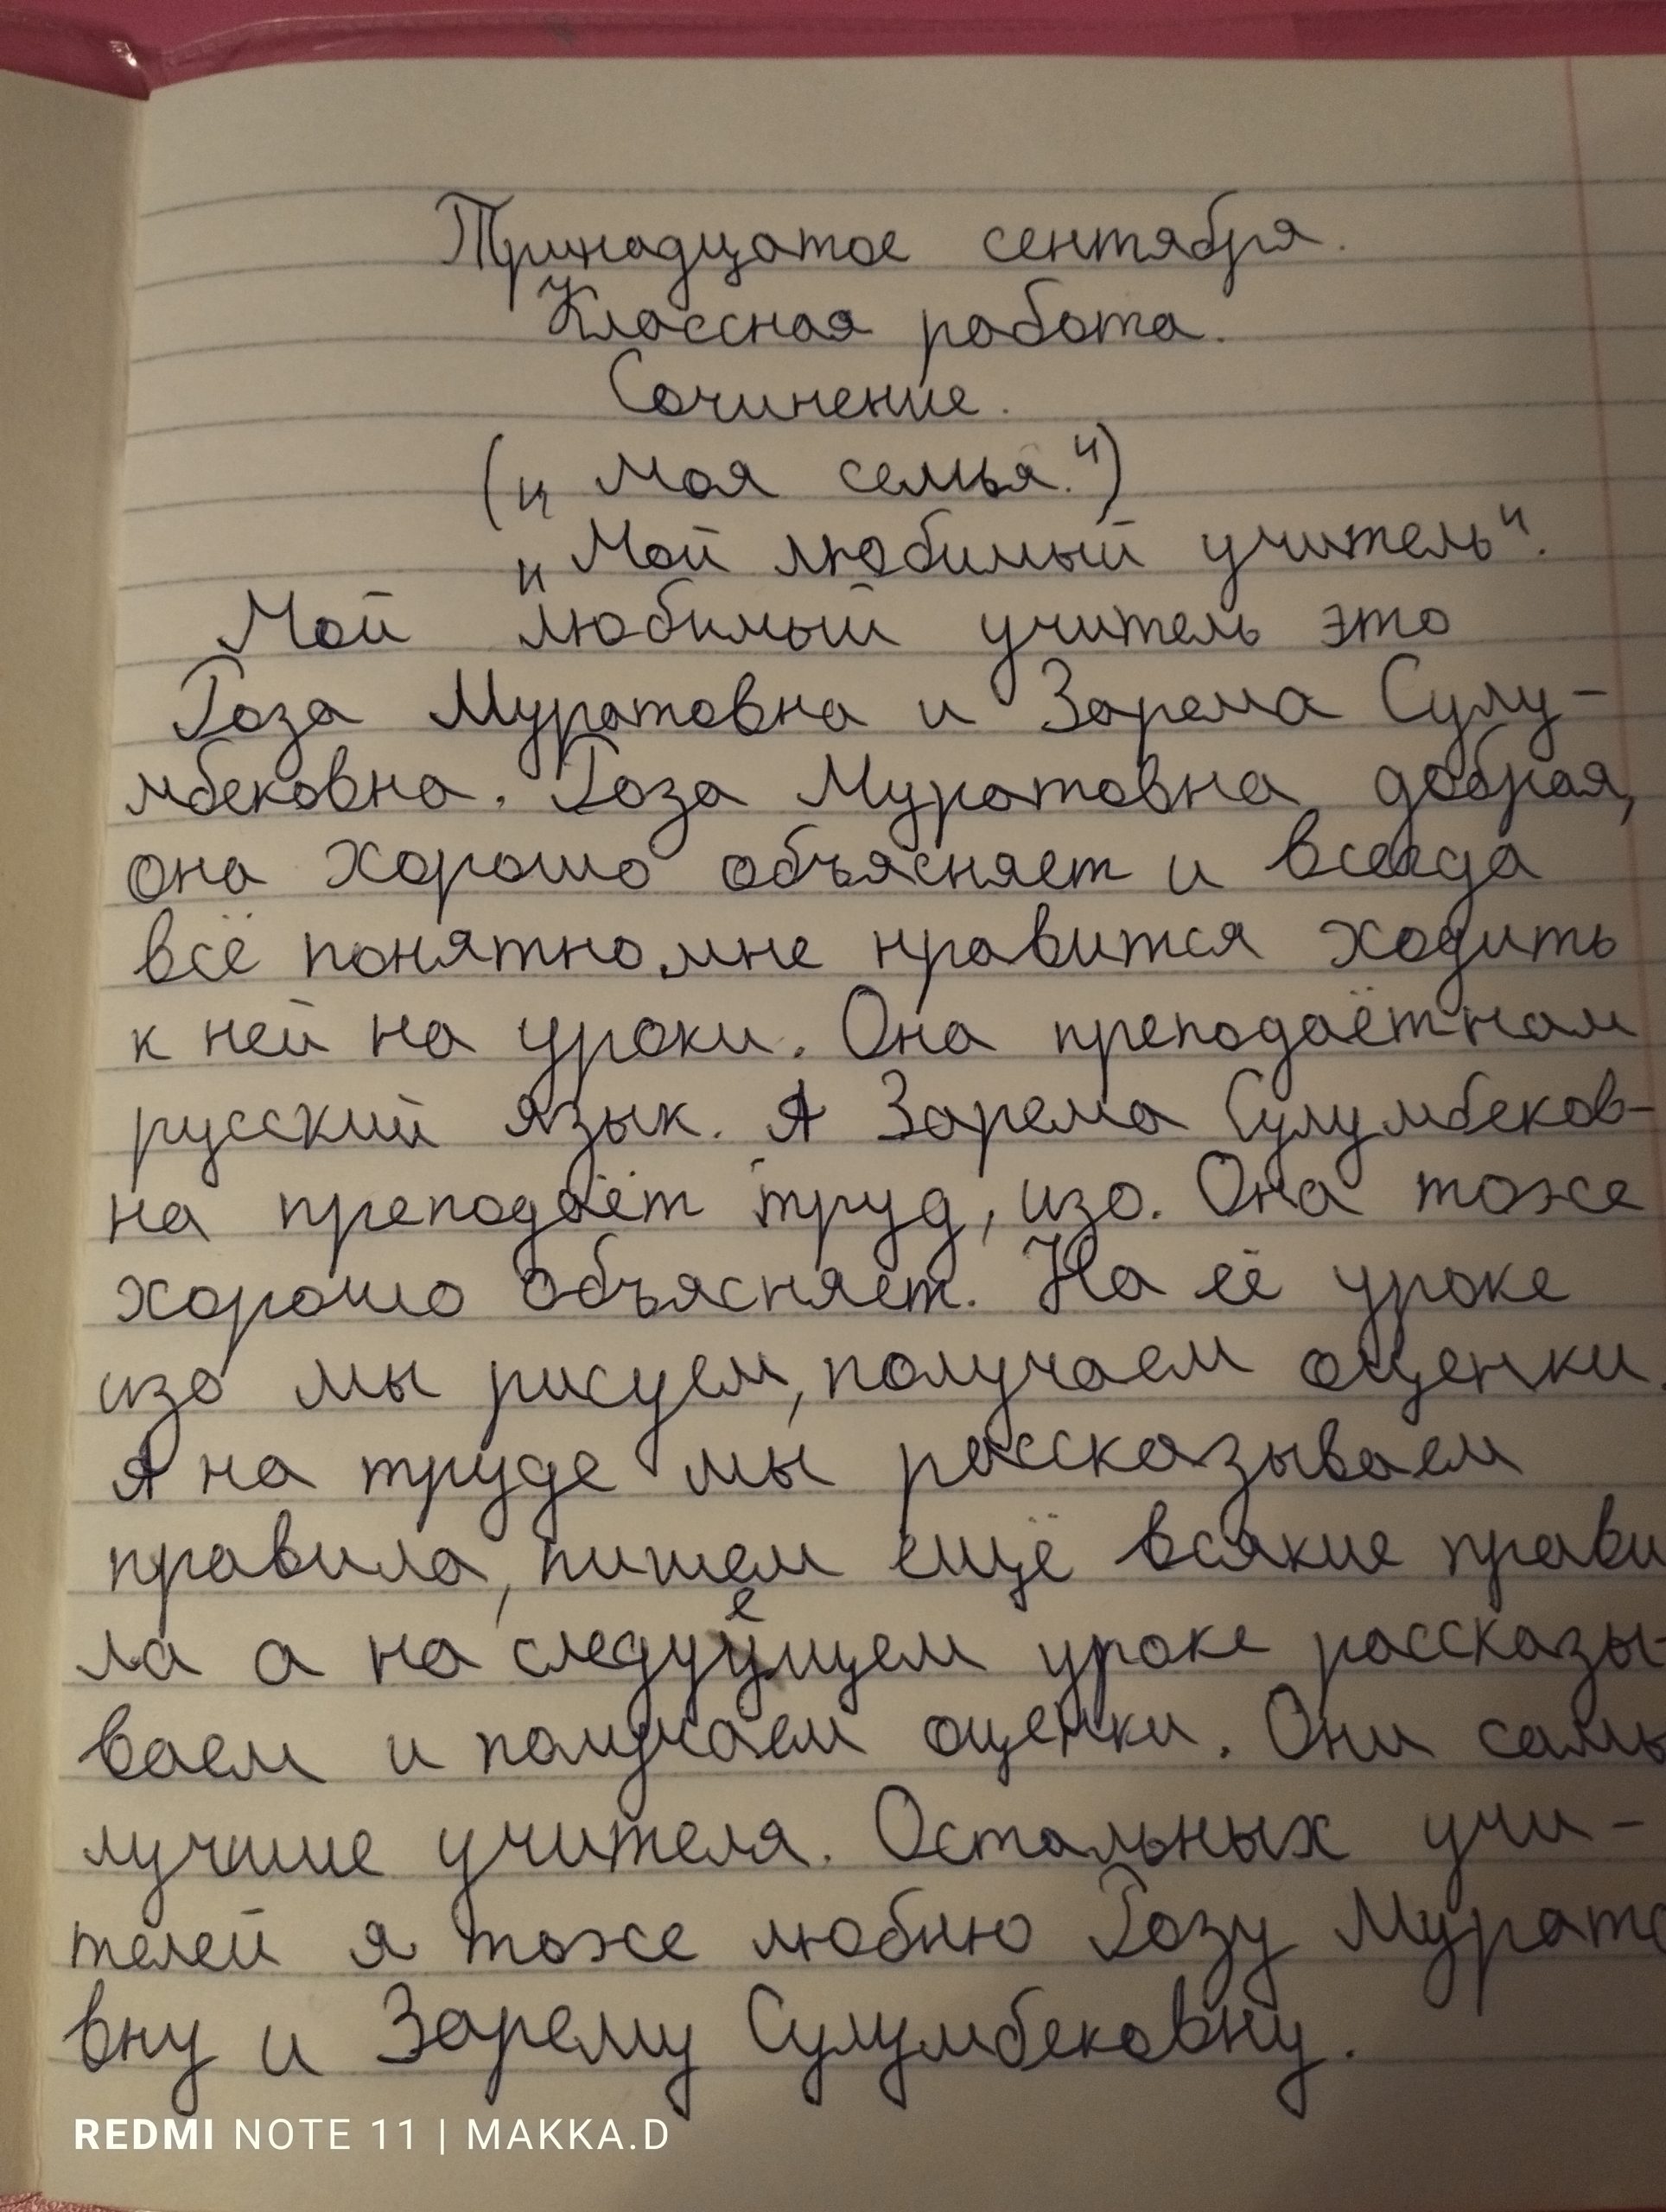 Тринадцатое сентября.
Классная работа.
Сочинение.
(„Моя семья.“)
„Мой любимый учитель“.
Мой любимый учитель это
Роза Муратовна и Зарема Сулу-
мбековна. Роза Муратовна добрая,
она хорошо объясняет и всегда
всё понятно, мне нравится ходить
к ней на уроки. Она преподаёт нам
русский язык. А Зарема Сулумбеков-
на преподаёт труд, изо. Она тоже
хорошо объясняет. На её уроке
изо мы рисуем, получаем оценки.
А на труде мы рассказываем
правила, пишем ещё всякие прави
ла а на следуещем уроке рассказы-
ваем и получаем оценки. Они самы
лучшие учителя. Остальных учи-
телей я тоже люблю Розу Мурато
вну и Зарему Сулумбековну.
REDMI NOTE 11 | MAKKA.D